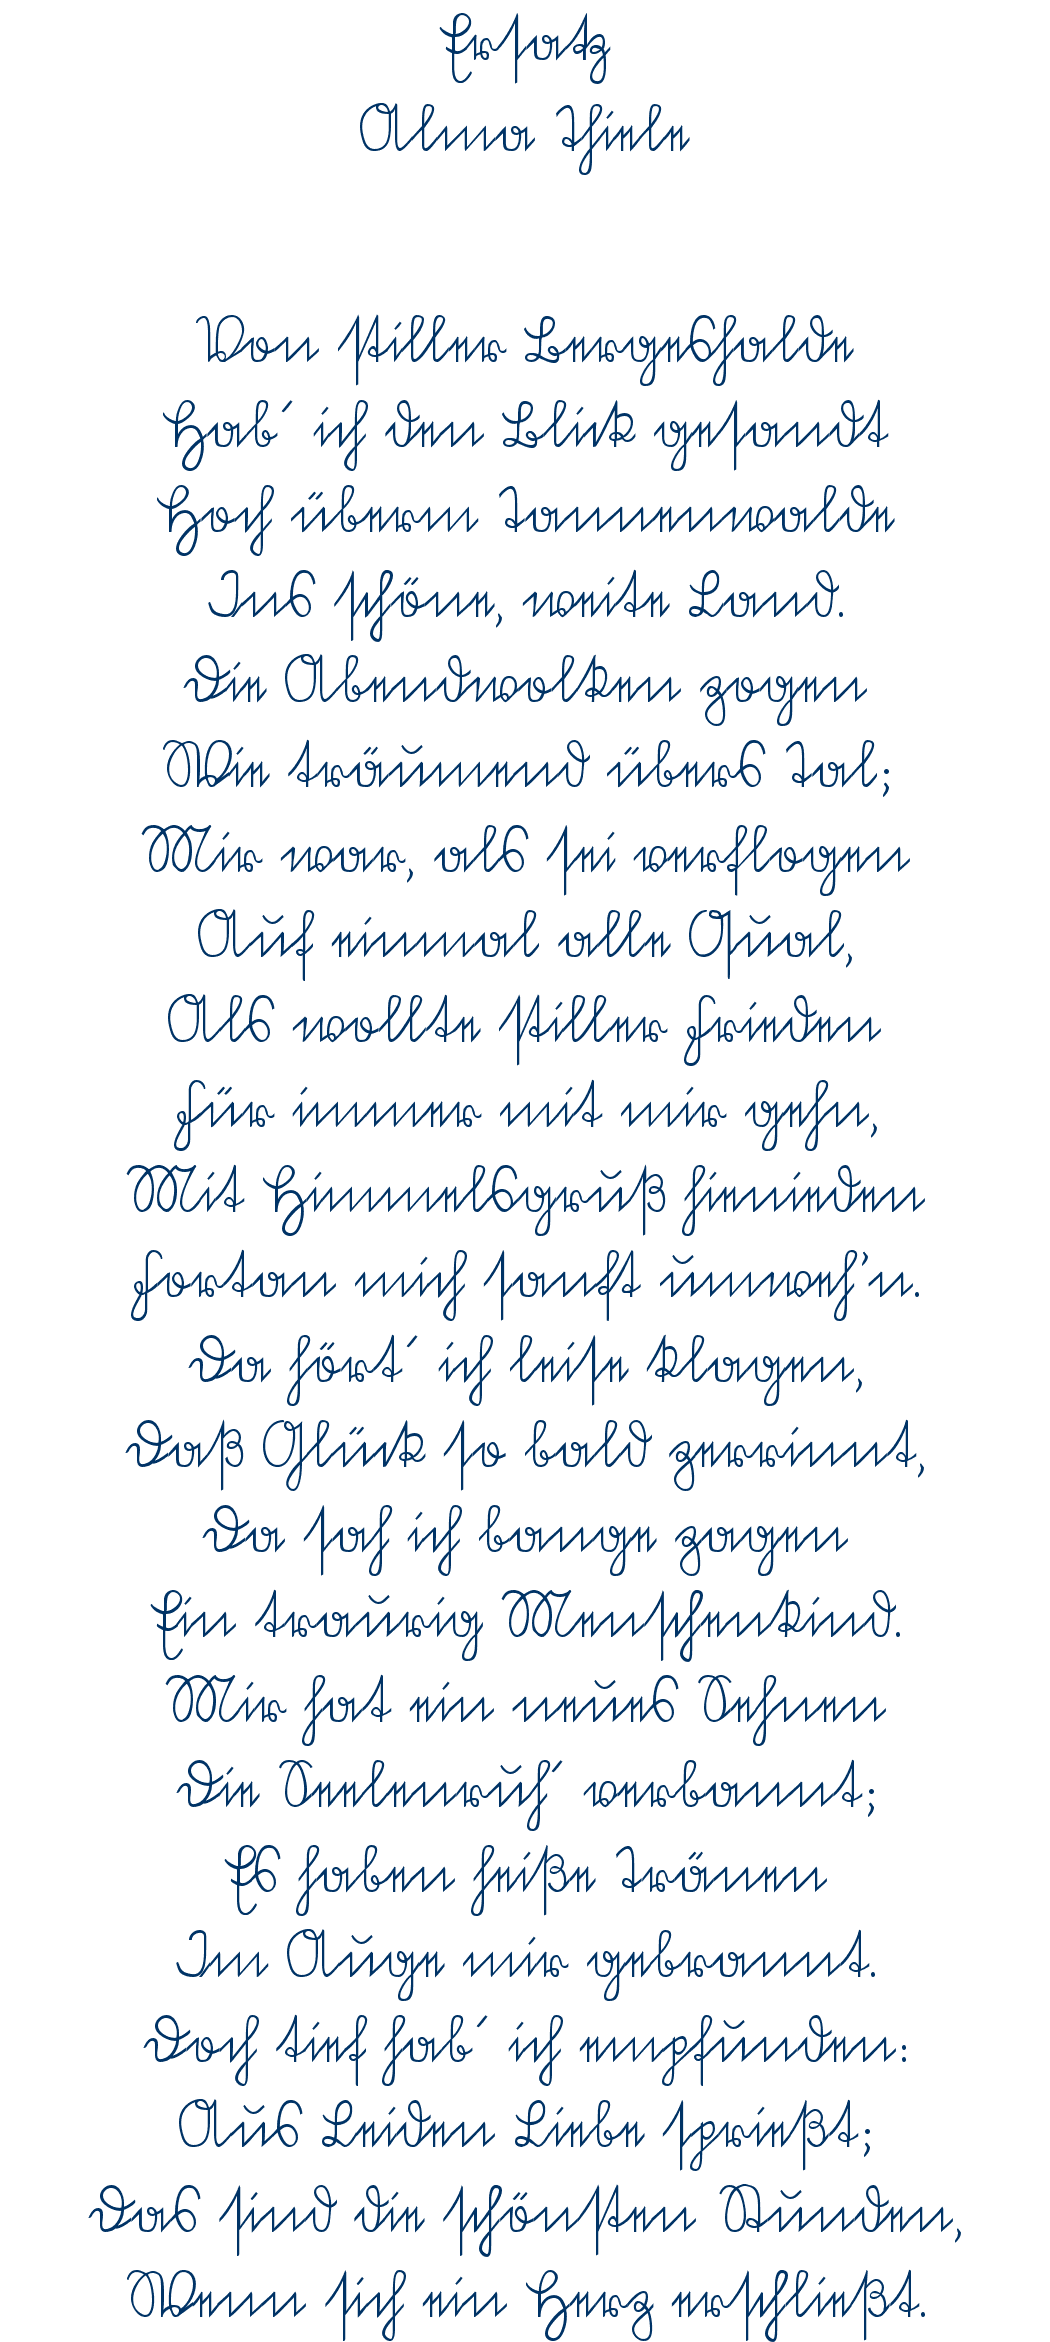 Ersatz
Alma Thiele
Von stiller Bergeshalde
Hab´ ich den Blick gesandt
Hoch überm Tannenwalde
Ins schöne, weite Land.
Die Abendwolken zogen
Wie träumend übers Tal;
Mir war, als sei verflogen
Auf einmal alle Qual,
Als wollte stiller Frieden
Für immer mit mir gehn,
Mit Himmelsgruß hienieden
Fortan mich sanft umweh’n.
Da hört´ ich leise klagen,
Daß Glück so bald zerrinnt,
Da sah ich bange zagen
Ein traurig Menschenkind.
Mir hat ein neues Sehnen
Die Seelenruh´ verbannt;
Es haben heiße Tränen
Im Auge mir gebrannt.
Doch tief hab´ ich empfunden:
Aus Leiden Liebe sprießt;
Das sind die schönsten Stunden,
Wenn sich ein Herz erschließt.